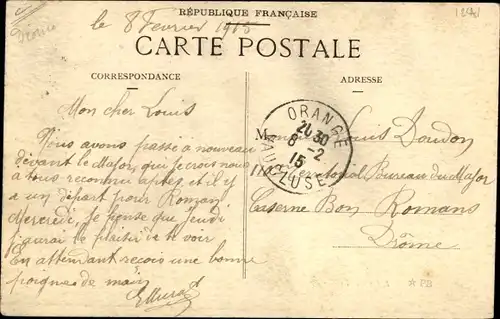 RÉPUBLIQUE FRANÇAISE
le 8 Fevrier 1915
CARTE POSTALE
CORRESPONDANCE
Mon cher Louis
Nous avons passé à nouveau
devant le Major, qui je crois nous
a tous reconnu aptes, et il y
a un départ pour Romans
Mercredi, je pense que jeudi
j'aurai le plaisir de te voir
En attendant reçois une bonne
poignée de main
ADRESSE
ORANGE
20 30
8 - 2
15
VAUCLUSE
M Louis Doudon
Territorial Bureau du Major
Caserne Bon Romans
Drôme
PB